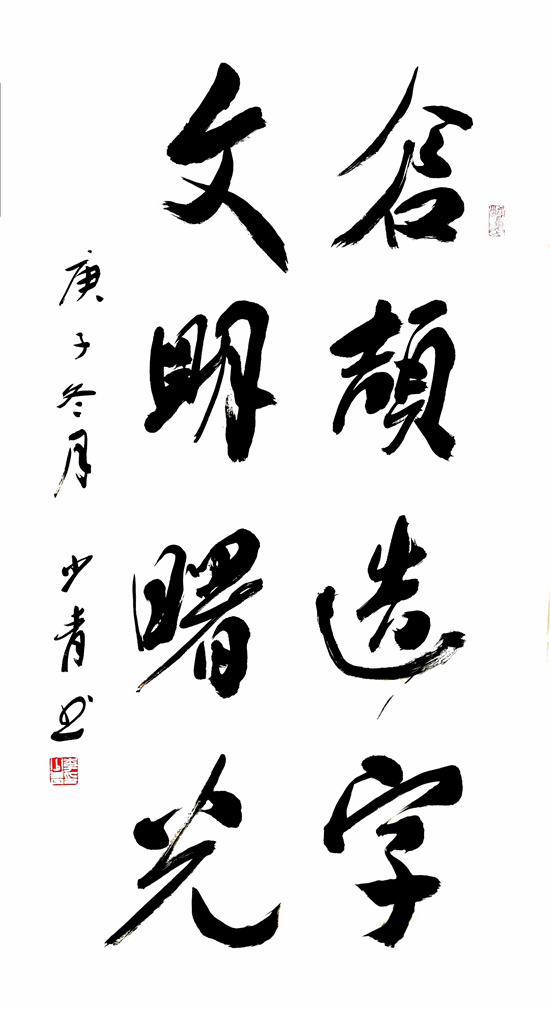 仓颉造字
文明曙光
庚子冬月 少青书